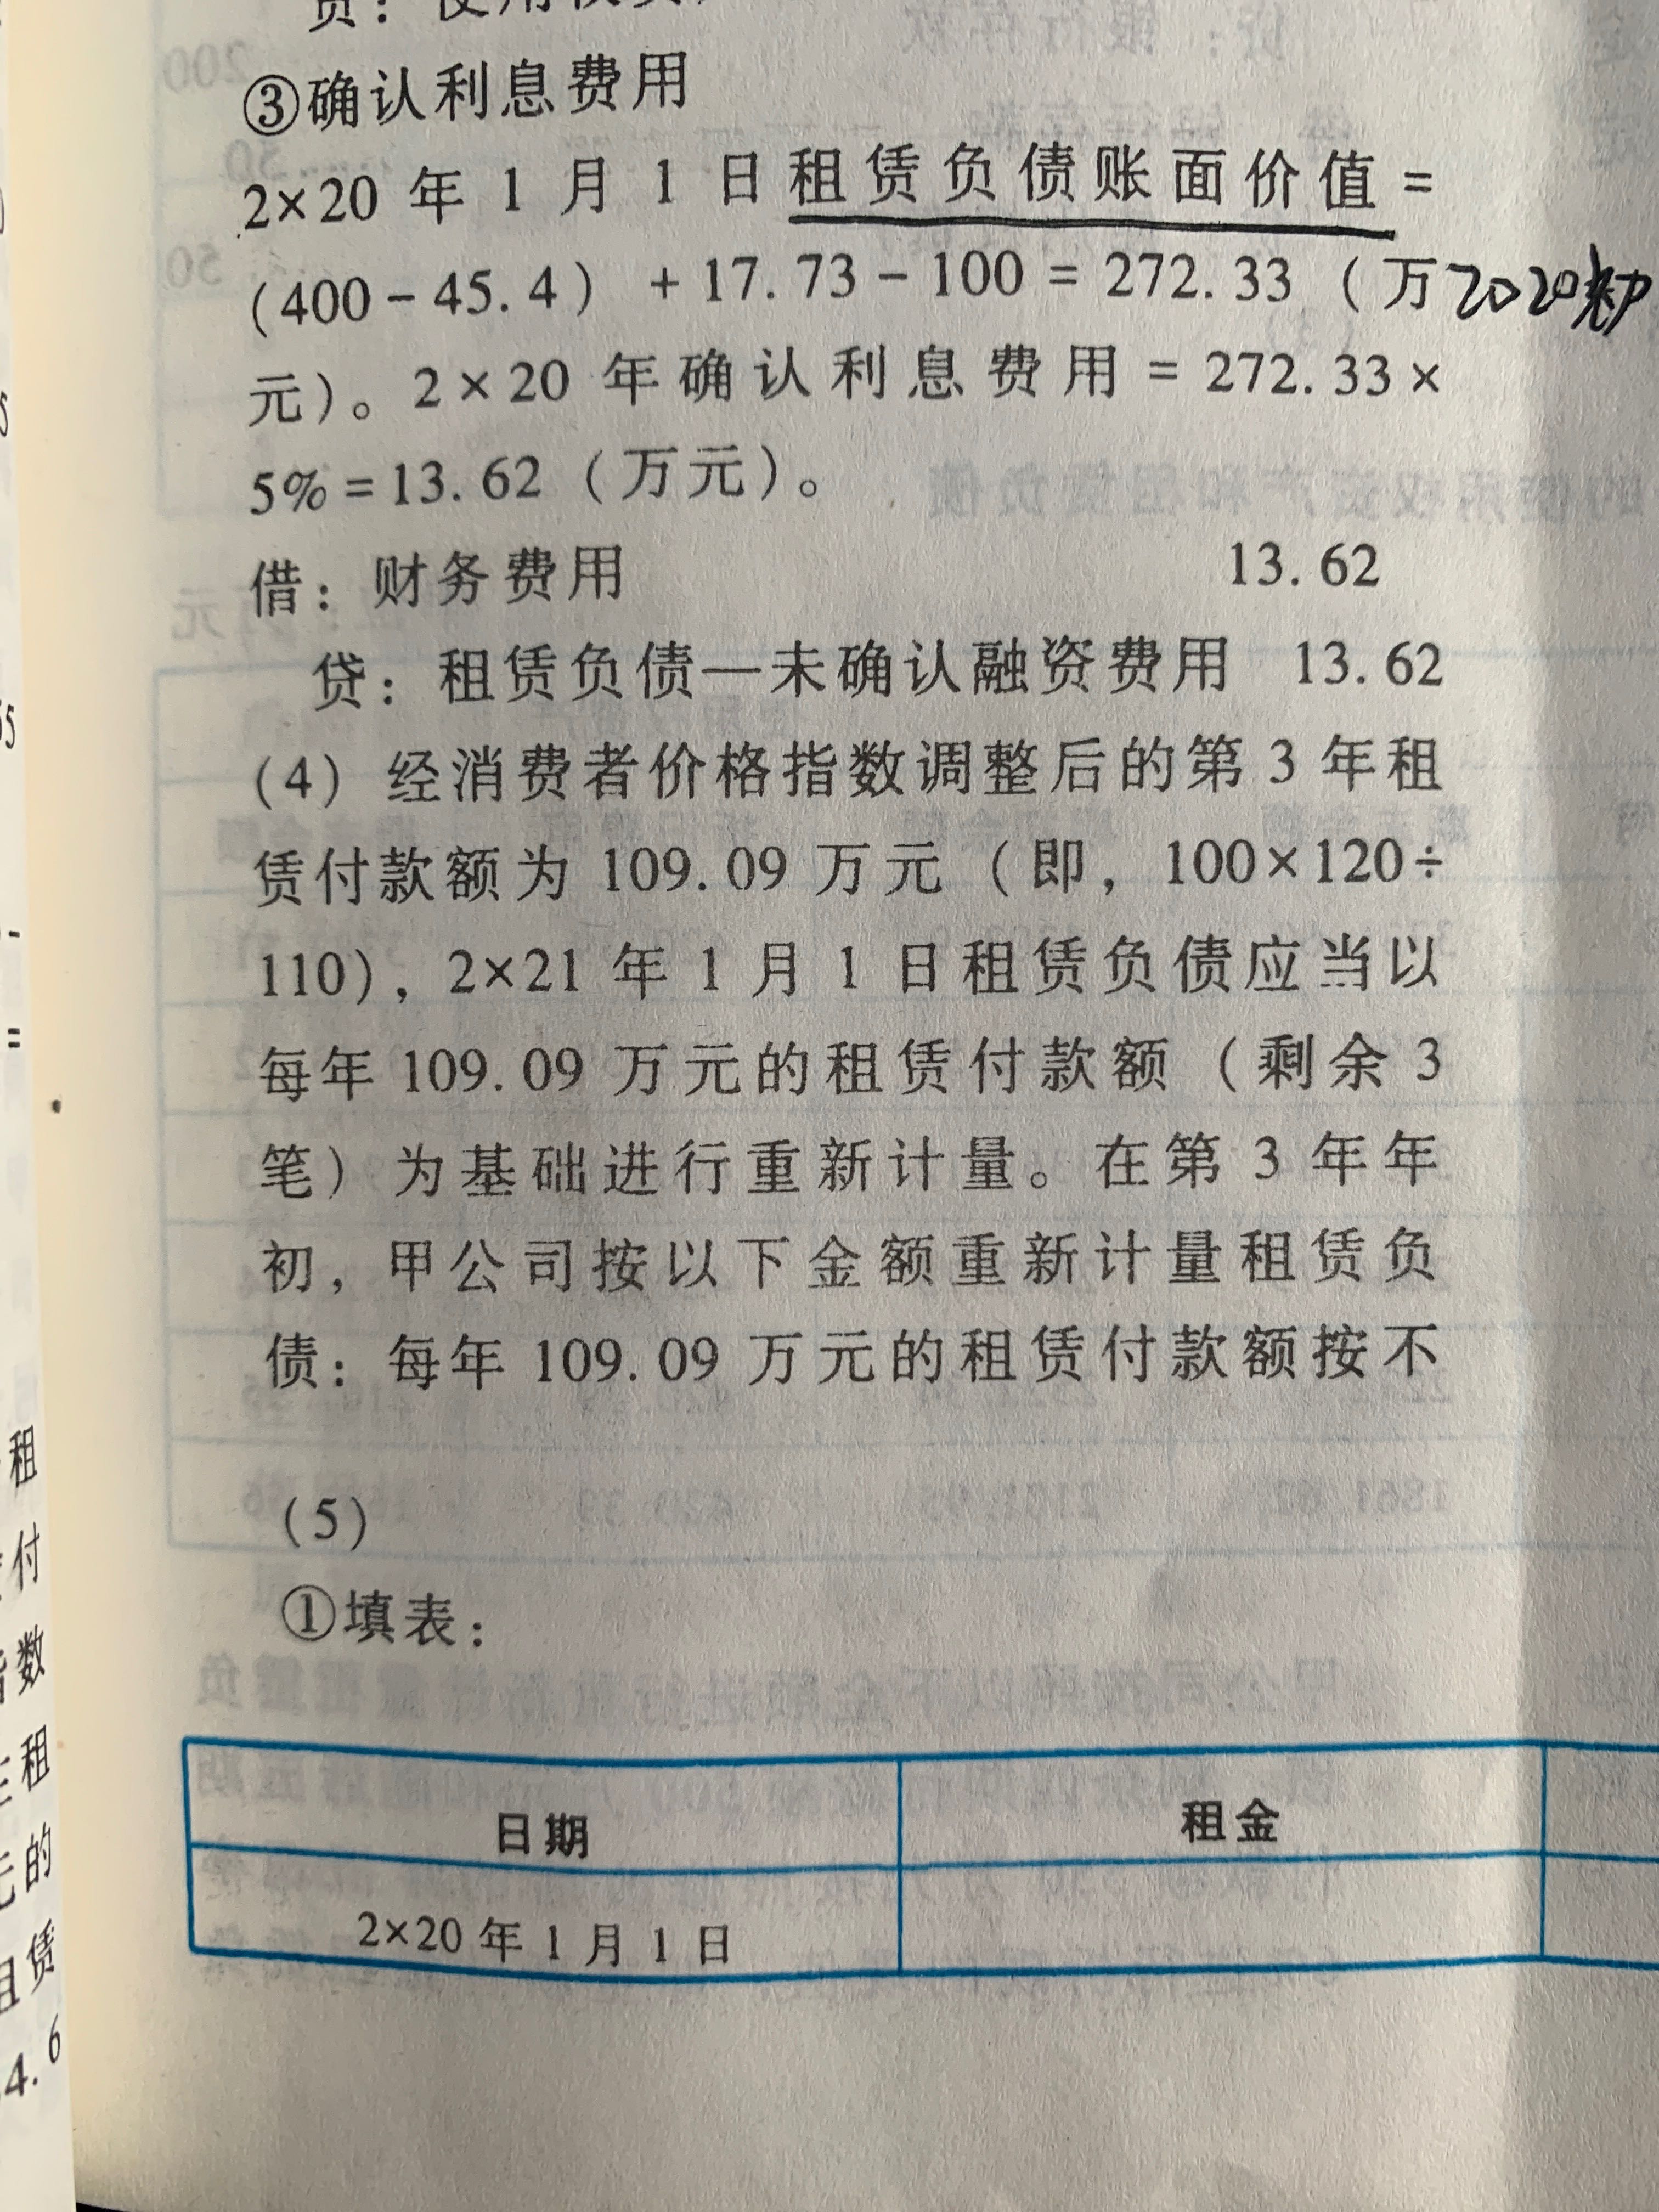 ③确认利息费用
2×20 年 1 月 1 日租赁负债账面价值 =
(400-45.4) +17.73-100=272.33 (万
2020初
元)。2×20 年确认利息费用=272.33×
5%=13.62 (万元)。
借: 财务费用 13.62
贷: 租赁负债—未确认融资费用 13.62
(4) 经消费者价格指数调整后的第 3 年租
赁付款额为 109.09 万元 (即, 100×120÷
110), 2×21 年 1 月 1 日租赁负债应当以
每年 109.09 万元的租赁付款额 (剩余 3
笔) 为基础进行重新计量。在第 3 年年
初, 甲公司按以下金额重新计量租赁负
债: 每年 109.09 万元的租赁付款额按不
(5)
①填表:
日期 租金
2×20 年 1 月 1 日
租
付
数
租
的
赁
4.6